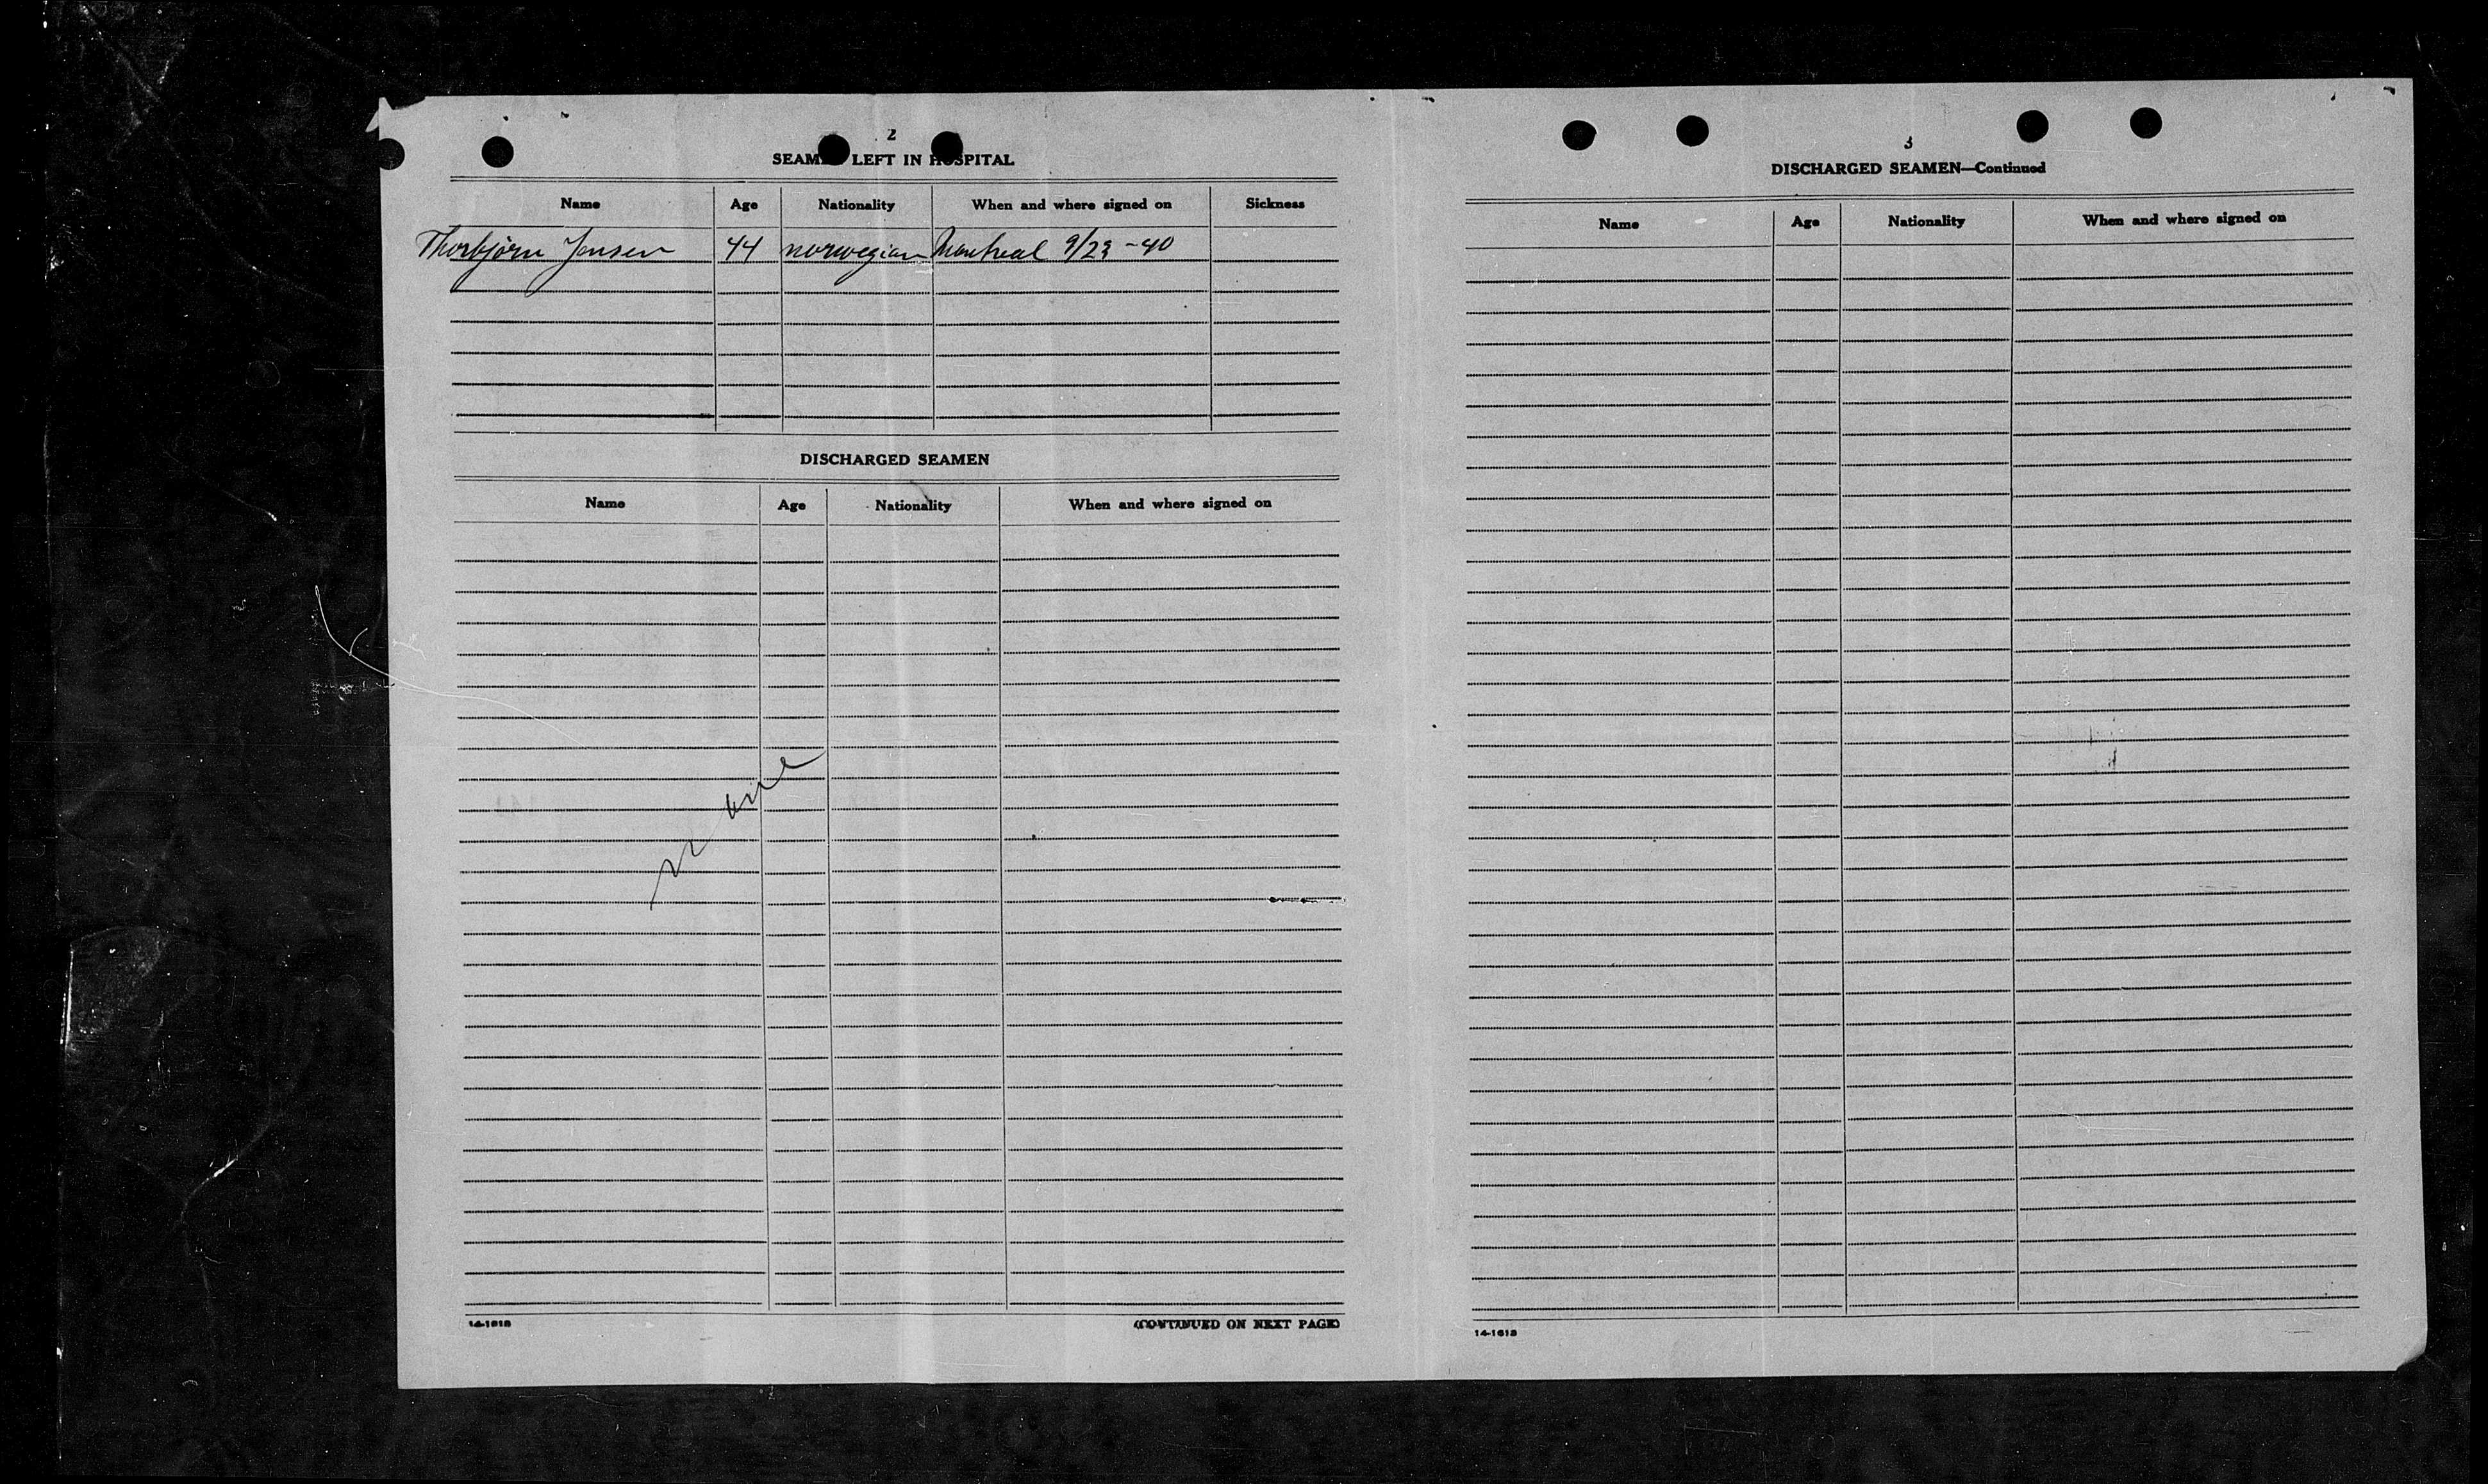 2
SEAMEN LEFT IN HOSPITAL
Name Age Nationality When and where signed on Sickness
Thorbjörn Jensen 44 norwegian Montreal 9/23-40
DISCHARGED SEAMEN
Name Age Nationality When and where signed on
none
14-1618
(CONTINUED ON NEXT PAGE)
3
DISCHARGED SEAMEN—Continued
Name Age Nationality When and where signed on
14-1618